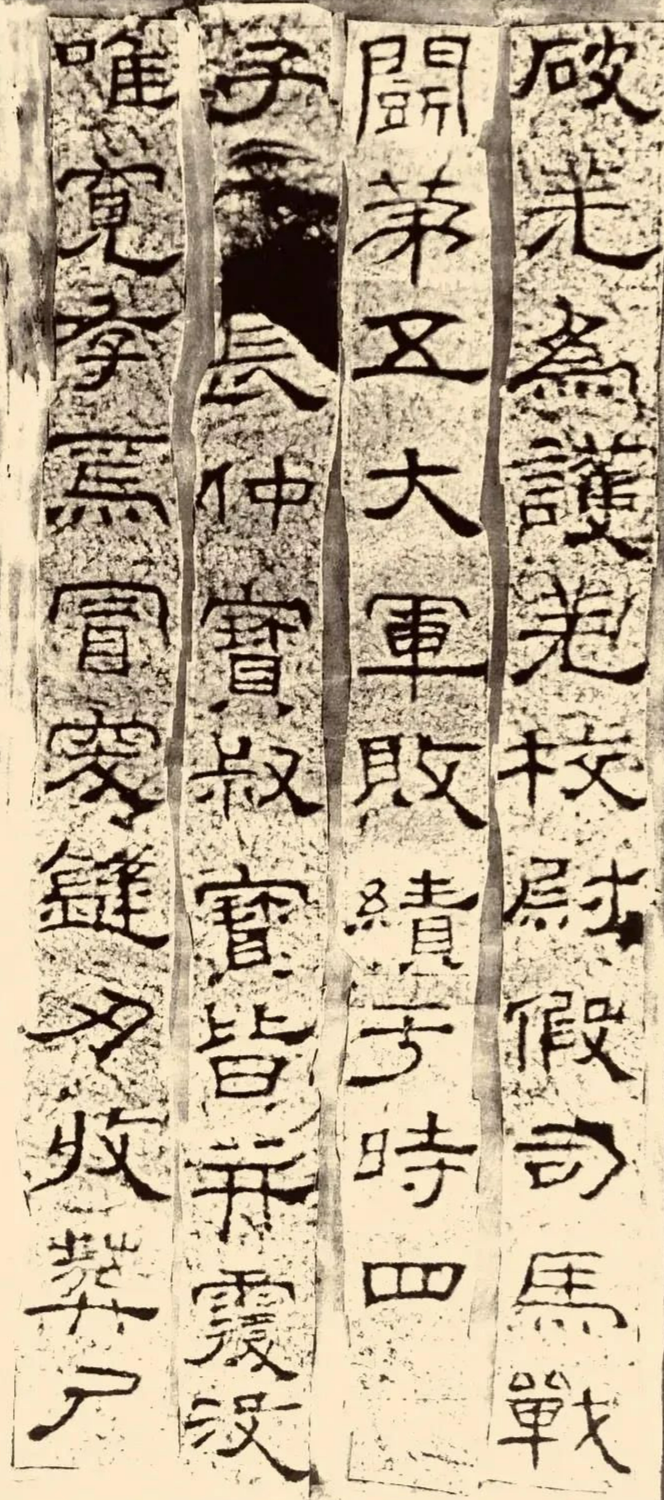 破羌為護羌校尉假司馬戰
鬭第五大軍敗績于時四
子長仲寶叔寶皆并覆没
唯寬存焉冒突鋒刃收葬尸